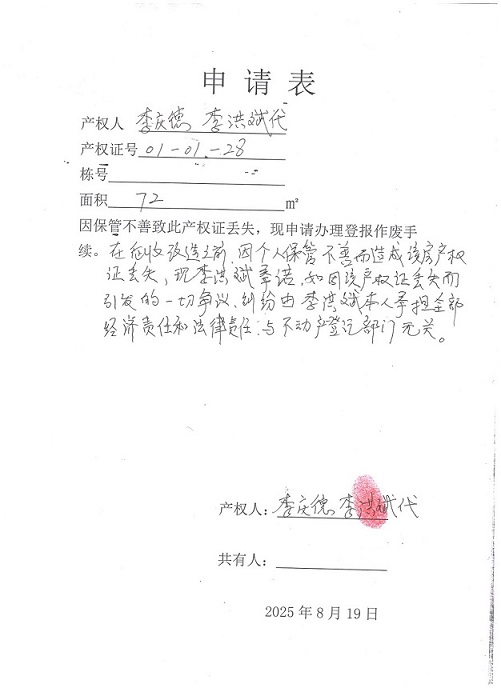 申请表
产权人 李庆德 李洪斌代
产权证号 01-01-28
栋号
面积 72 m²
因保管不善致此产权证丢失，现申请办理登报作废手
续。在征收改造之前，因个人保管不善而造成该房产权
证丢失，现李洪斌承诺，如因该产权证丢失而
引发的一切争议、纠纷由李洪斌本人承担全部
经济责任和法律责任，与不动产登记部门无关。
产权人：李庆德 李洪斌代
共有人：
2025年8月19日